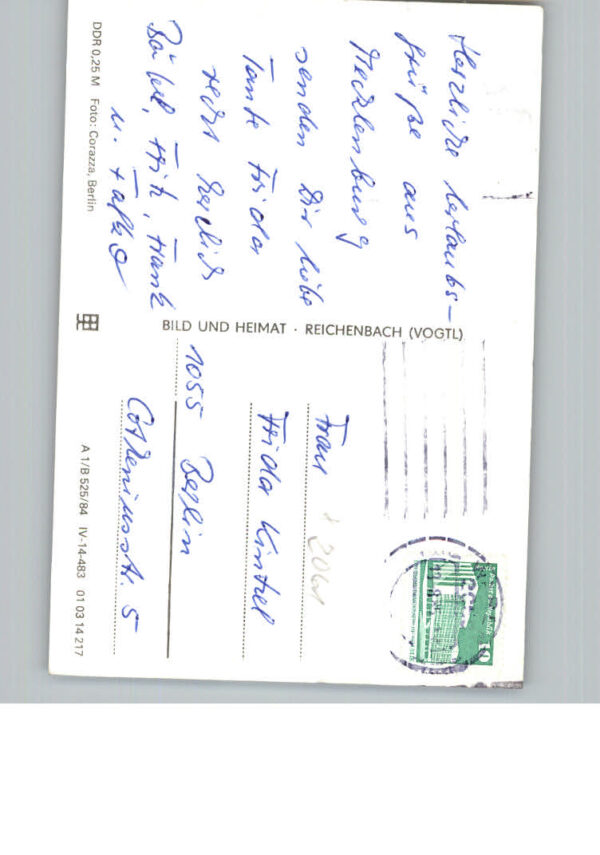 Herzliche Urlaubs-
grüße aus
Mecklenburg
senden Dir liebe
Tante Frida
recht herzlich
Bärbel, Fritz, Frank
u. Falko
DDR 0,25 M Foto: Corazza, Berlin
BILD UND HEIMAT · REICHENBACH (VOGTL)
Frau
Frida Kintzel
1055 Berlin
Cotheniusstr. 5
A 1/B 525/84 IV-14-483 01 03 14 217
10